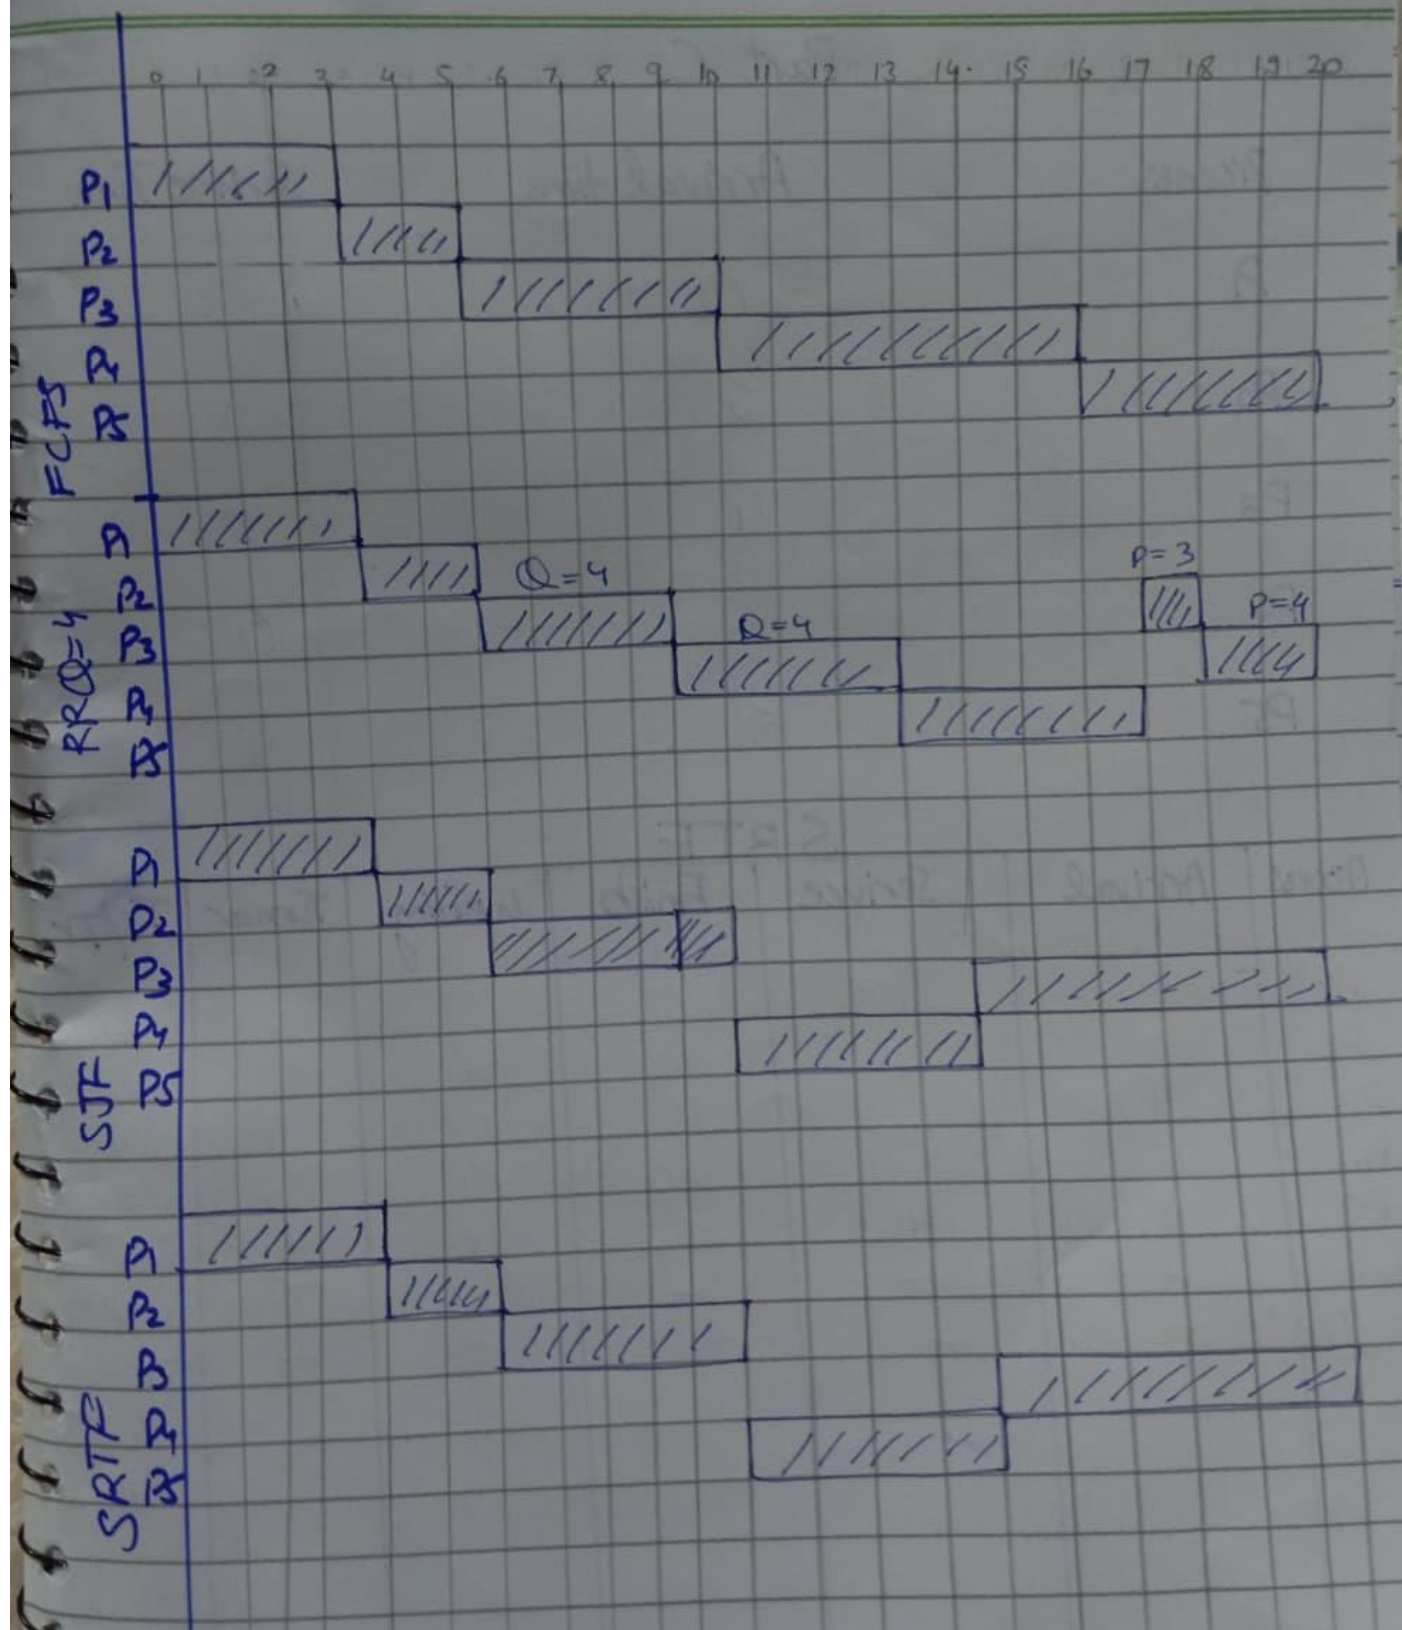 0 1 2 3 4 5 6 7 8 9 10 11 12 13 14 15 16 17 18 19 20
FCFS
P1
P2
P3
P4
P5
RRQ=4
P1
P2
P3
P4
P5
Q=4
Q=4
P=3
P=4
SJF
P1
P2
P3
P4
P5
SRTF
P1
P2
P3
P4
P5